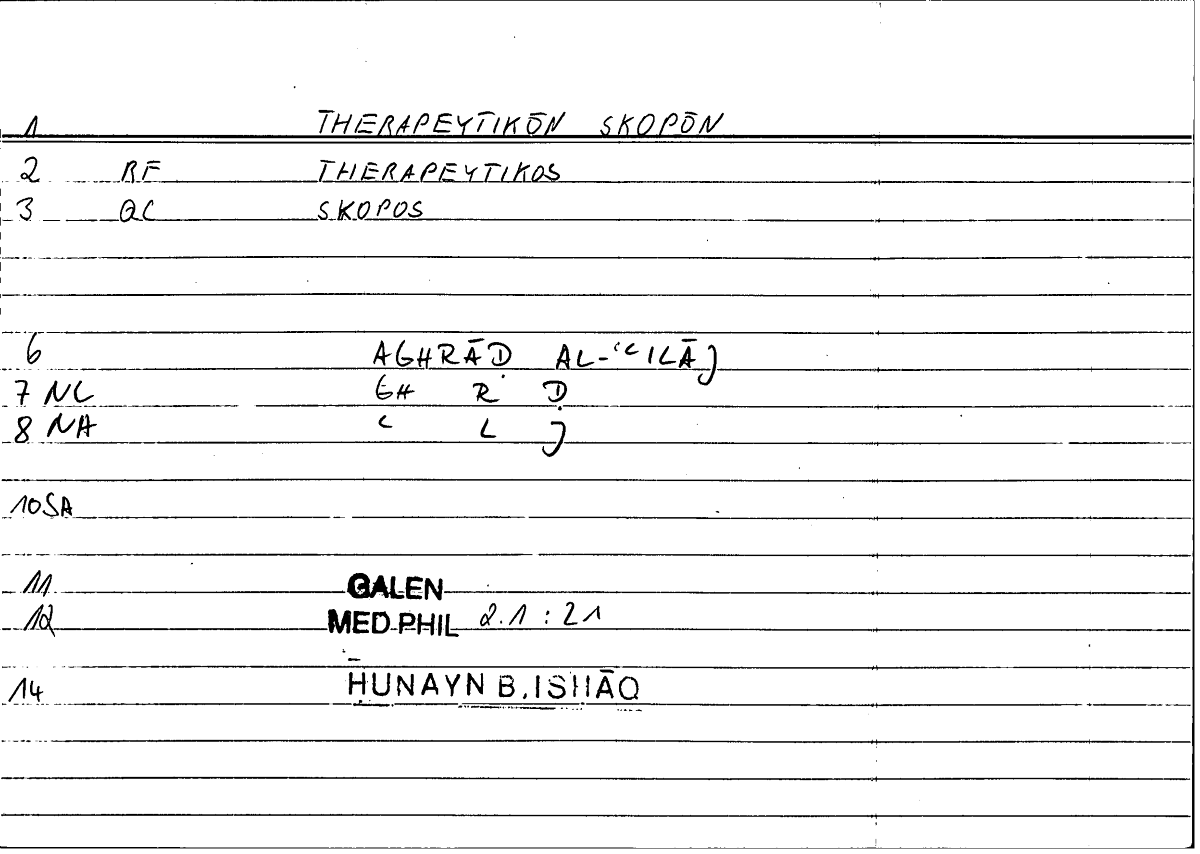 1 THERAPEYTIKŌN SKOPŌN
2 RF THERAPEYTIKOS
3 QC SKOPOS
6 AGHRĀḌ AL-ʿILĀJ
7 NC GH R Ḍ
8 NA ʿ L J
10 SA
11 GALEN
12 MED.PHIL 2.1 : 21
14 ḤUNAYN B. ISḤĀQ